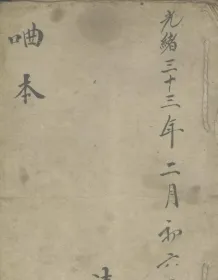 光緒三十三年二月初六
呞本